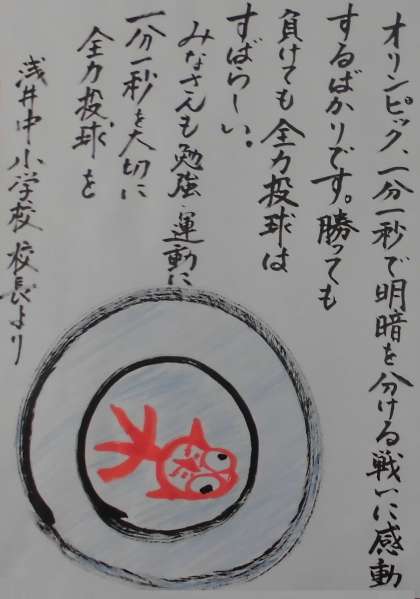 オリンピック、一分一秒で明暗を分ける戦いに感動
するばかりです。勝っても
負けても全力投球は
すばらしい。
みなさんも勉強・運動に
一分一秒を大切に
全力投球を
浅井中小学校 校長より